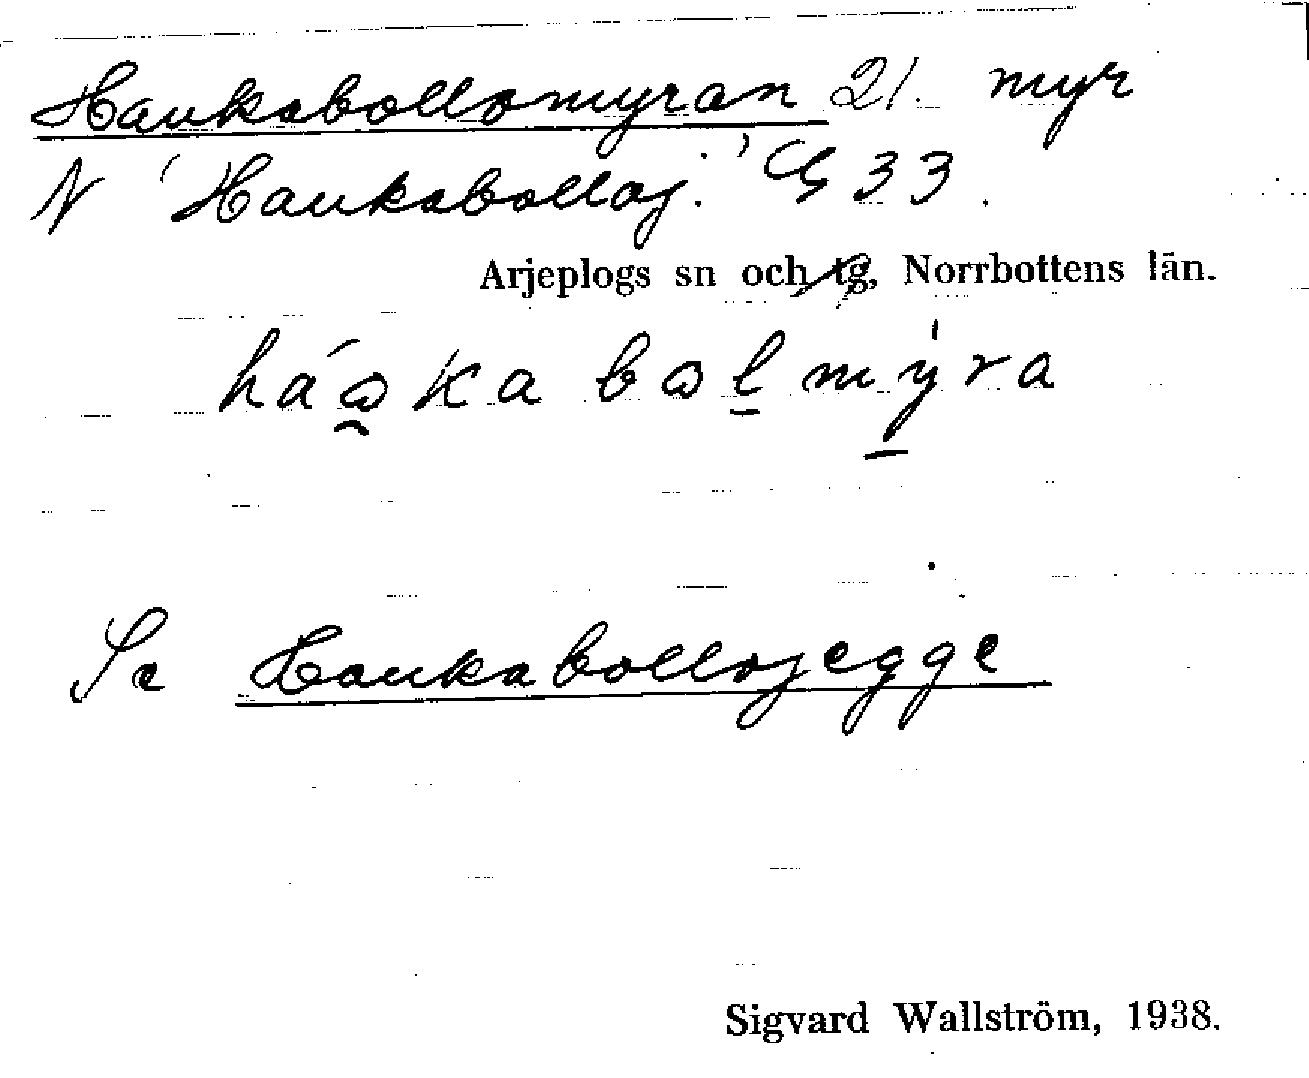 Haukabollomyran 21. myr
N 'Haukabolloj.' G 33.
Arjeplogs sn och tg, Norrbottens län.
Se Haukabollojegge
Sigvard Wallström, 1938.